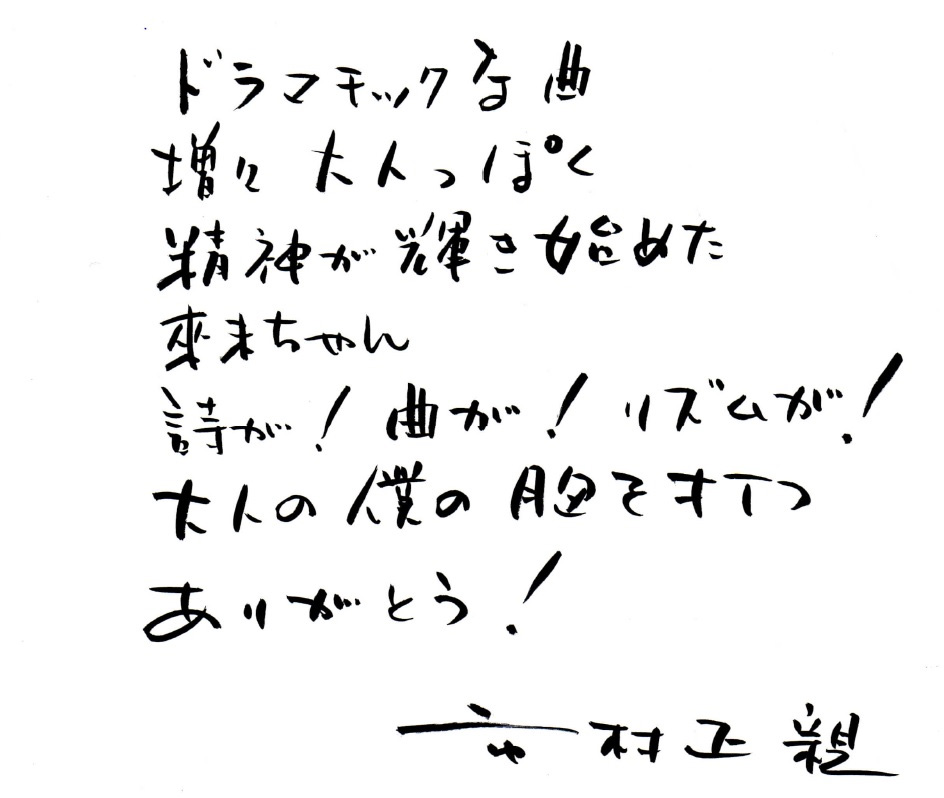 ドラマチックな曲
増々 大人っぽく
精神が輝き始めた
來未ちゃん
詩が! 曲が! リズムが!
大人の僕の胸を打つ
ありがとう!
市村正親